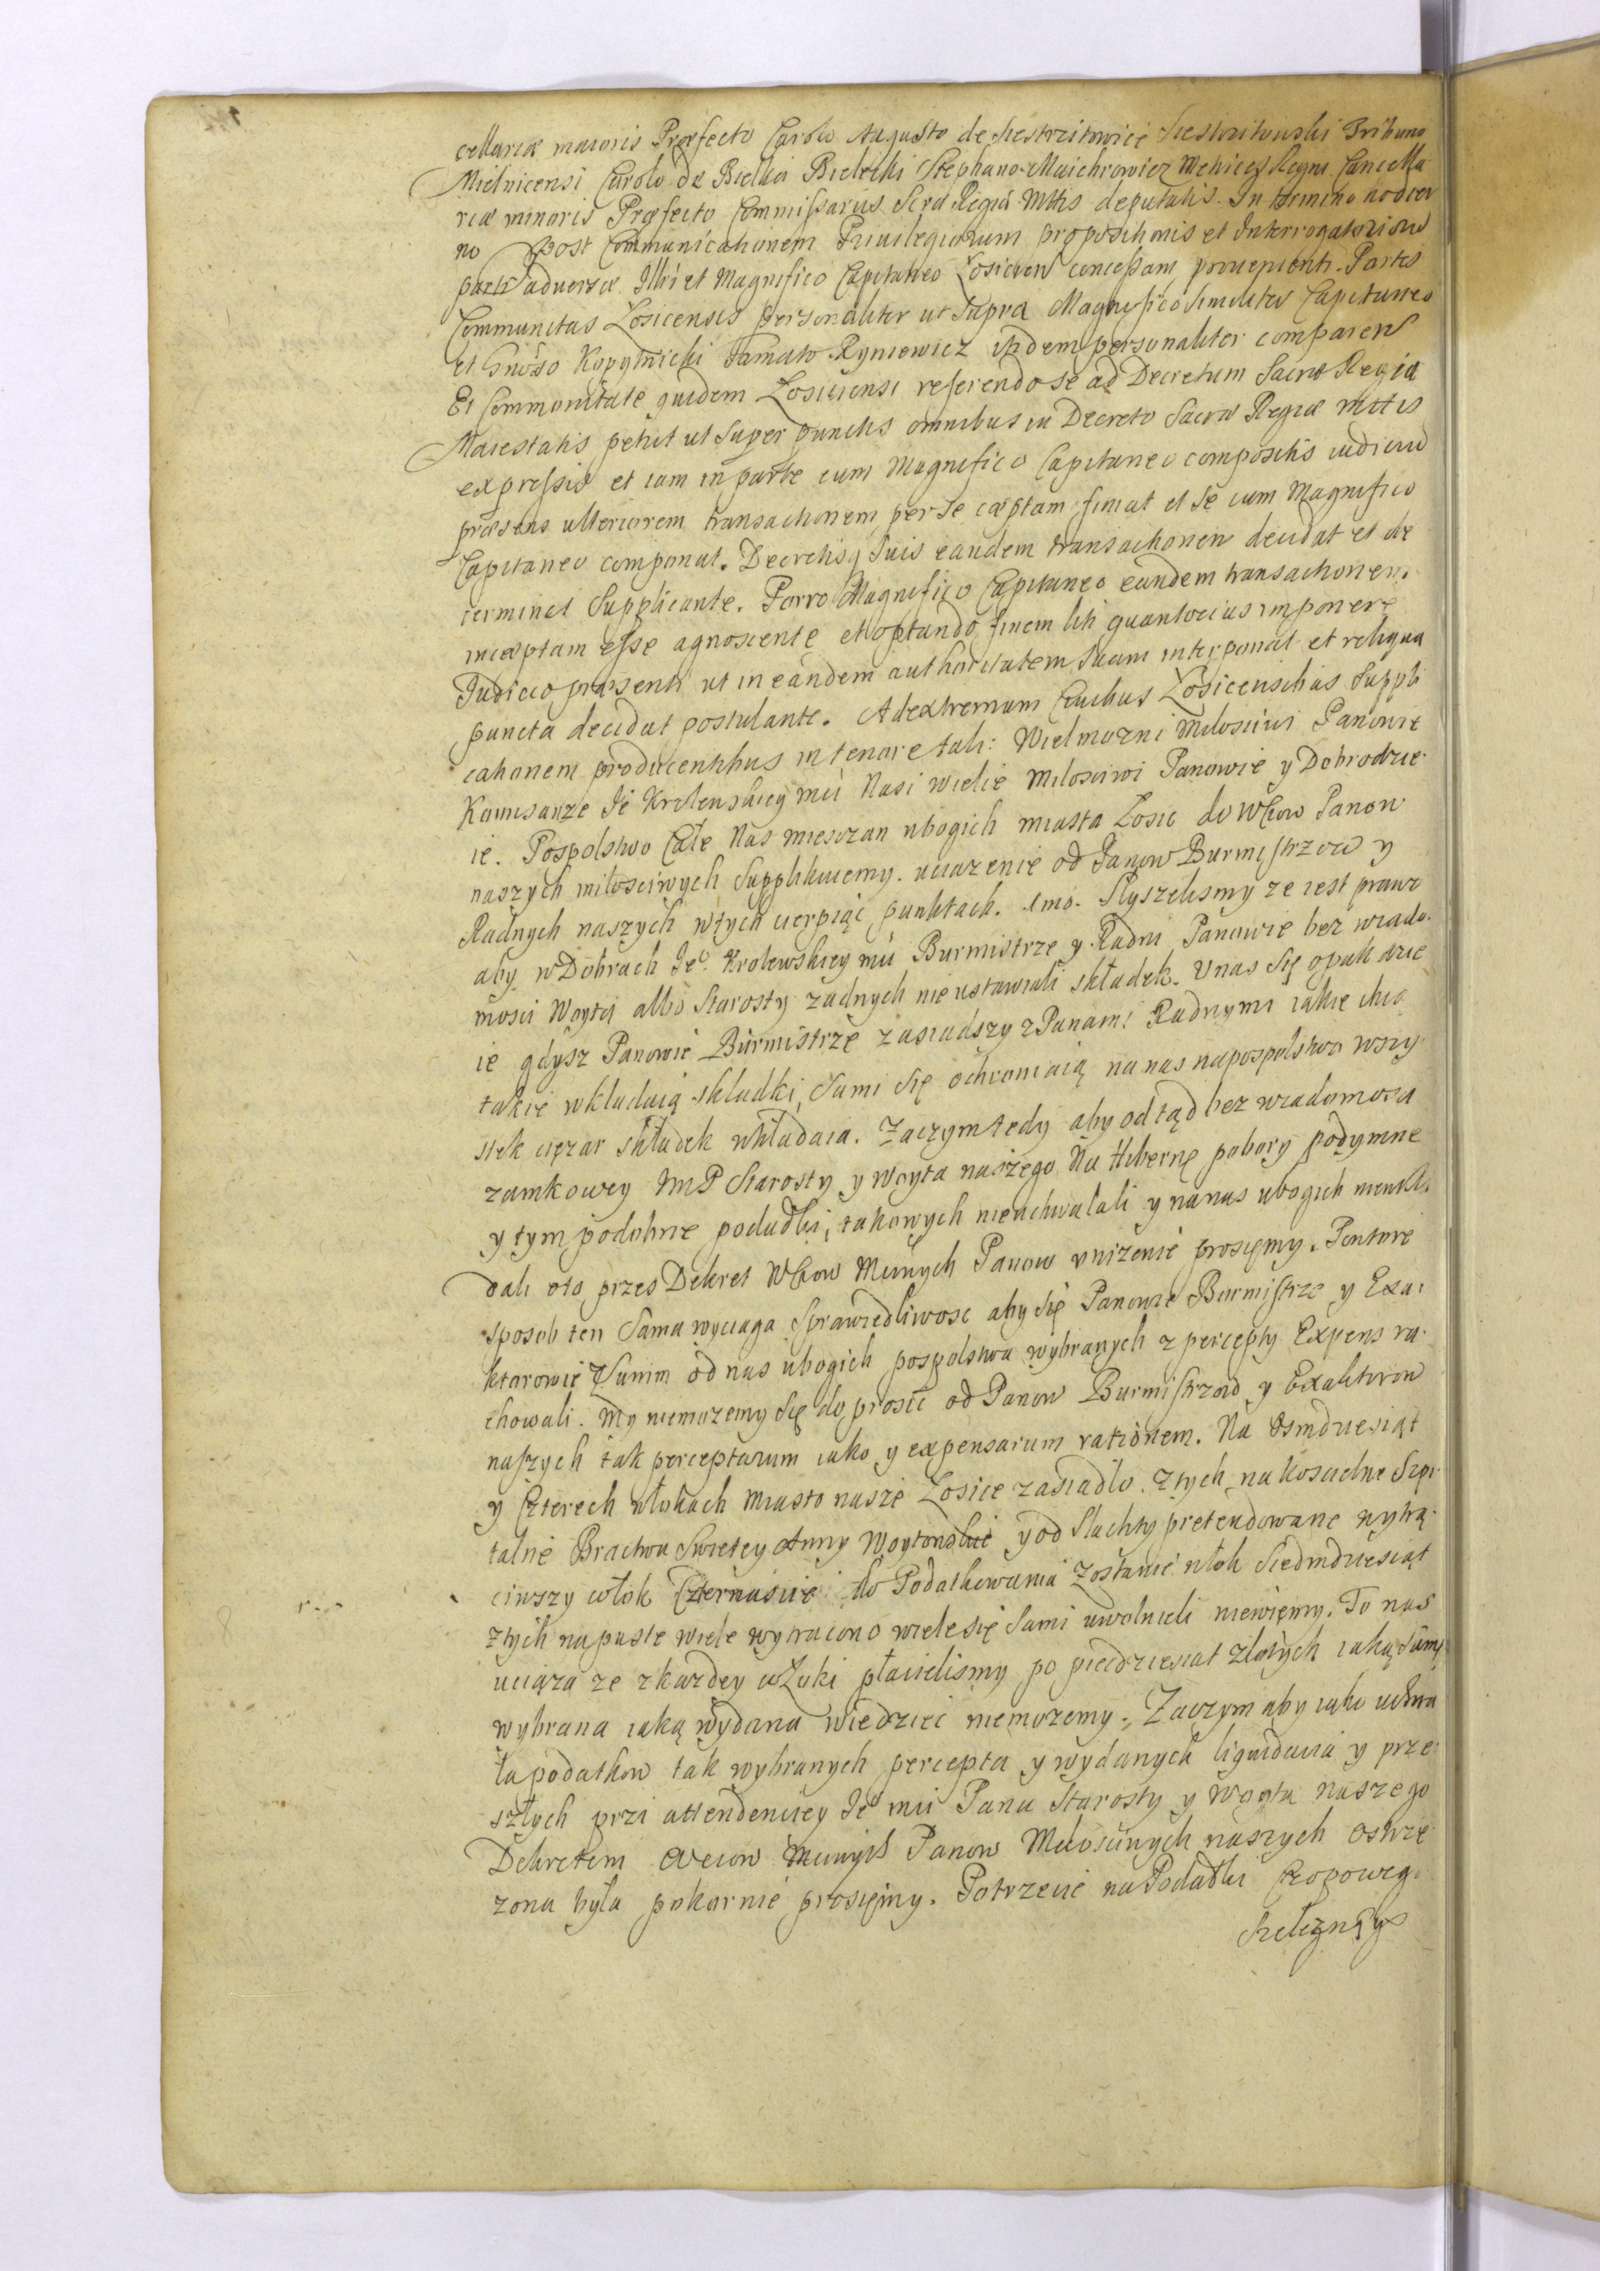 cellariæ maioris Præfecto Carolo Augusto de Siestrzitowicie Siestrzitowski Tribuno
Mielnicensi Carolo de Bielki Bielecki Stephano Maichrowicz Metrices Regni Cancella
riæ minoris Præfecto Commissarijs Scræ Regiæ Mttis deputatis. In termino hodier
no post Communicationem Priuilegiorum propositionis et Interrogatoriorū
parti aduersæ Illri et Magnifico Capitaneo Losicen concessam proueniente. Partes
Communitas Losicensis personaliter ut supra Magnifico similiter Capitaneo
et Gnoso Kopytnicki famato Ryniewicz itidem personaliter comparen
Et Communitate quidem Losiciensi referendo se ad Decretum Sacræ Regiæ
Maiestatis petiit ut super punctis omnibus in Decreto Sacræ Regiæ Mttis
expressis et iam in parte cum Magnifico Capitaneo compositis iudicium
præsens ulteriorem transactionem per se cæptam finiat et se cum Magnifico
Capitaneo componat. Decretisq suis eandem transactionem decidat et de
terminet supplicante. Porro Magnifico Capitaneo eandem transactionem
incæptam esse agnoscente et optando finem liti quantocius imponere
Judicio præsenti ut in eandem authoritatem suam interponat et reliqua
puncta decidat postulante. Ad extremum Ciuibus Losicensibus suppli
cationem producentibus in tenore tali: Wielmozni Milosciwi Panowie
Komisarze Je Krolewskiey mci Nasi wielie milosciwi Panowie y Dobrodzie
ie. Pospolstwo Całe Nas miesczan ubogich miasta Łosic do WMciow Panow
naszych miłosciwych supplikuiemy. uciazenie od Panow Burmistrzow y
Radnych naszych w tych cierpiąc punktach. 1mo. Słyszelismy ze iest prawo
aby w Dobrach Jeo Krolewskiey mci Burmistrze y Radni Panowie bez wiado
mosci Woyta albo Starosty zadnych nie ustawiali składek. U nas się opak dzie
ie gdysz Panowie Burmistrze zasiadszy z Panami Radnymi iakie chcą
takie wkładaią składki, sami się ochraniaią na nas na pospolstwo wszy
stek cięzar składek wkładaia. Zaczym tedy aby odtąd bez wiadomosci
zamkowey JmP Starosty y Woyta naszego Na Hibernę pobory podymne
y tym podobne podatki, takowych nie uchwalali y na nas ubogich niewkła
dali oto przes Dekret WMciow Mciwych Panow unizenie prosięmy. Pontore
sposob ten sama wyciaga sprawiedliwosc aby się Panowie Burmistrze y Exa
ktorowie z summ od nas ubogich pospolstwa wybranych z percepty Expens ra
chowali. My niemozemy się do prosic od Panow Burmistrzow y Exaktorow
naszych tak perceptarum iako y expensarum rationem. Na osmdziesiąt
y Czterech włokach Miasto nasze Łosice zasiadło. z tych na koscielne Szpi
talne Bractwa Swietey Anny Woytowskie y od slachty pretendowane wytrą
ciwszy włok Czternascie do Podatkowania zostanie włok siedmdziesiąt
z tych na puste wiele wytracono wiele się sami uwolnieli niewięmy. To nas
uciąza ze z kazdey włoki płacielismy po piecdziesiat złotych iaką sumę
wybrana iaką wydana wiedziec niemozemy. Zaczym aby iako uchwa
ła podatkow tak wybranych percepta y wydanych liquidacia y prze
szłych przi attendentiey Jeo mci Pana Starosty y Woyta naszego
Dekretem WMciow Mciwych Panow Miłosciwych naszych ostrze
zona była pokornie prosięmy. Potrzecie na Podatki Czopowego
Szelęznęgo